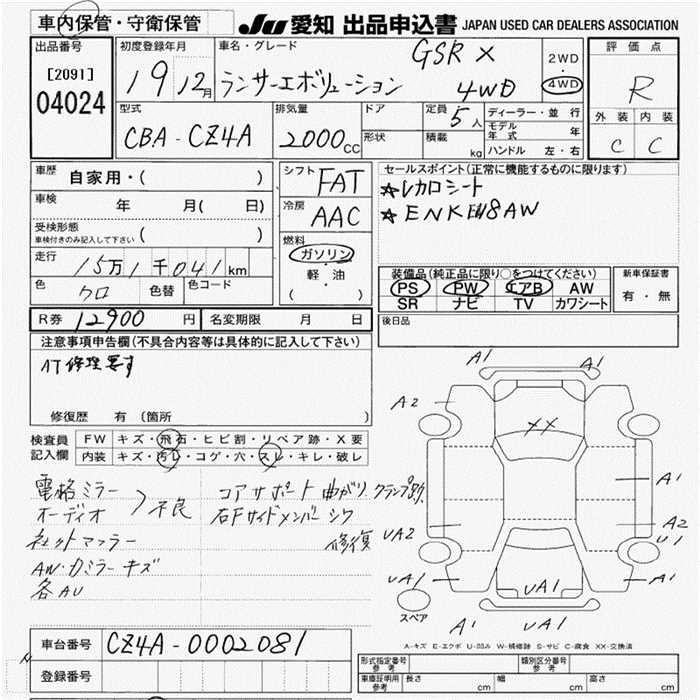 車内保管・守衛保管 JU 愛知 出品申込書 JAPAN USED CAR DEALERS ASSOCIATION
出品番号 [2091] 04024
初度登録年月 19 12月
車名・グレード GSR X
ランサーエボリューション 4WD
2WD・4WD
評価点 R
外装 内装
C C
型式 CBA-CZ4A
排気量 2000cc
ドア
形状
定員 5人
積載 kg
ディーラー・並行
モデル年式 年
ハンドル 左・右
車歴 自家用・( )
車検 年 月( 日)
受検形態
車検付きのみ記入して下さい ( )
走行 15万1千041km
色 クロ 色替 色コード
シフト FAT
冷房 AAC
燃料
ガソリン
・
軽・油
( )
セールスポイント(正常に機能するものに限ります)
☆レカロシート
☆ENKEI18AW
装備品(純正品に限り○をつけてください)
PS PW エアB AW
SR ナビ TV カワシート
新車保証書
有・無
R券 12900円 名変期限 月 日
後日品
注意事項申告欄(不具合内容等は具体的に記入して下さい)
AT修理要す
修復歴 有(箇所 )
検査員記入欄
FW キズ・飛石・ヒビ割・リペア跡・X要
内装 キズ・汚レ・コゲ・穴・スレ・キレ・破レ
電格ミラー
オーディオ 不良
社外マフラー
AW・カミラーキズ
各AU
コアサポート曲がり クランプ跡
右Fサイドメンバー シワ
修復
A1 A1
A2
XX
A1
A2
U1
UA2
UA1 UA1 A1
スペア
A1 UA1
A-キズ E-エクボ U-凹み W-補修跡 S-サビ C-腐食 XX-交換済
車台番号 CZ4A-0002081
登録番号
型式指定番号 参考
類別区分番号 参考
車庫証明用 参考 長さ cm 幅 cm 高さ cm